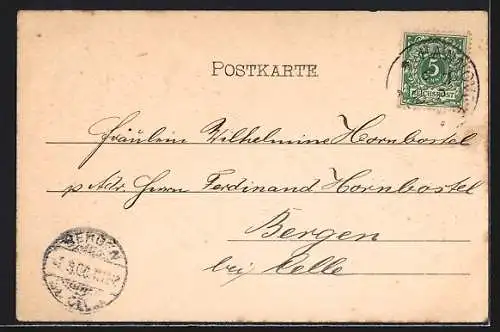 POSTKARTE
5
REICHSPOST
HANNOVER
Fräulein Wilhelmine Hornbostel
p Adr. Herrn Ferdinand Hornbostel
Bergen
bei Celle
BERGEN